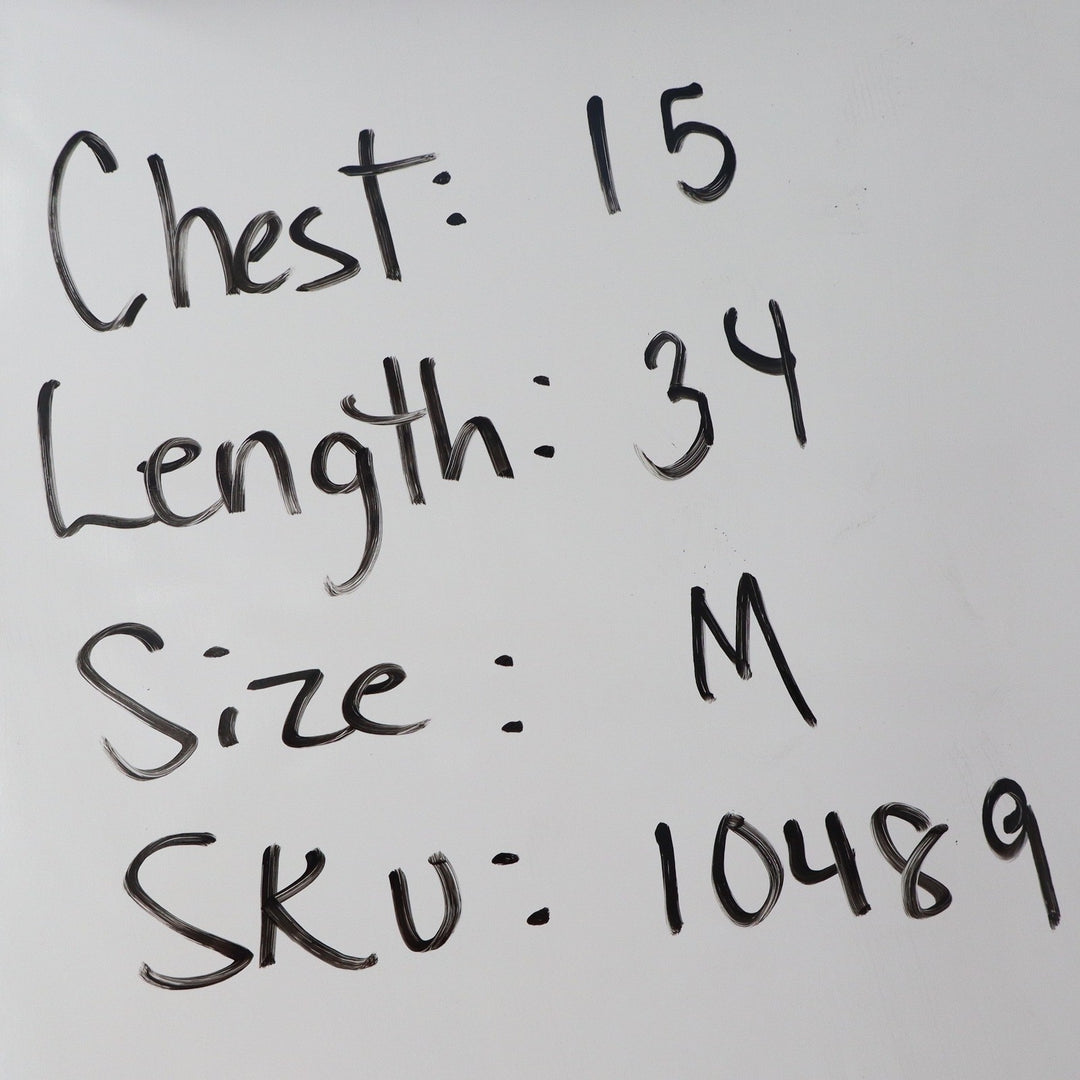 Chest: 15
Length: 34
Size: M
SKU: 10489